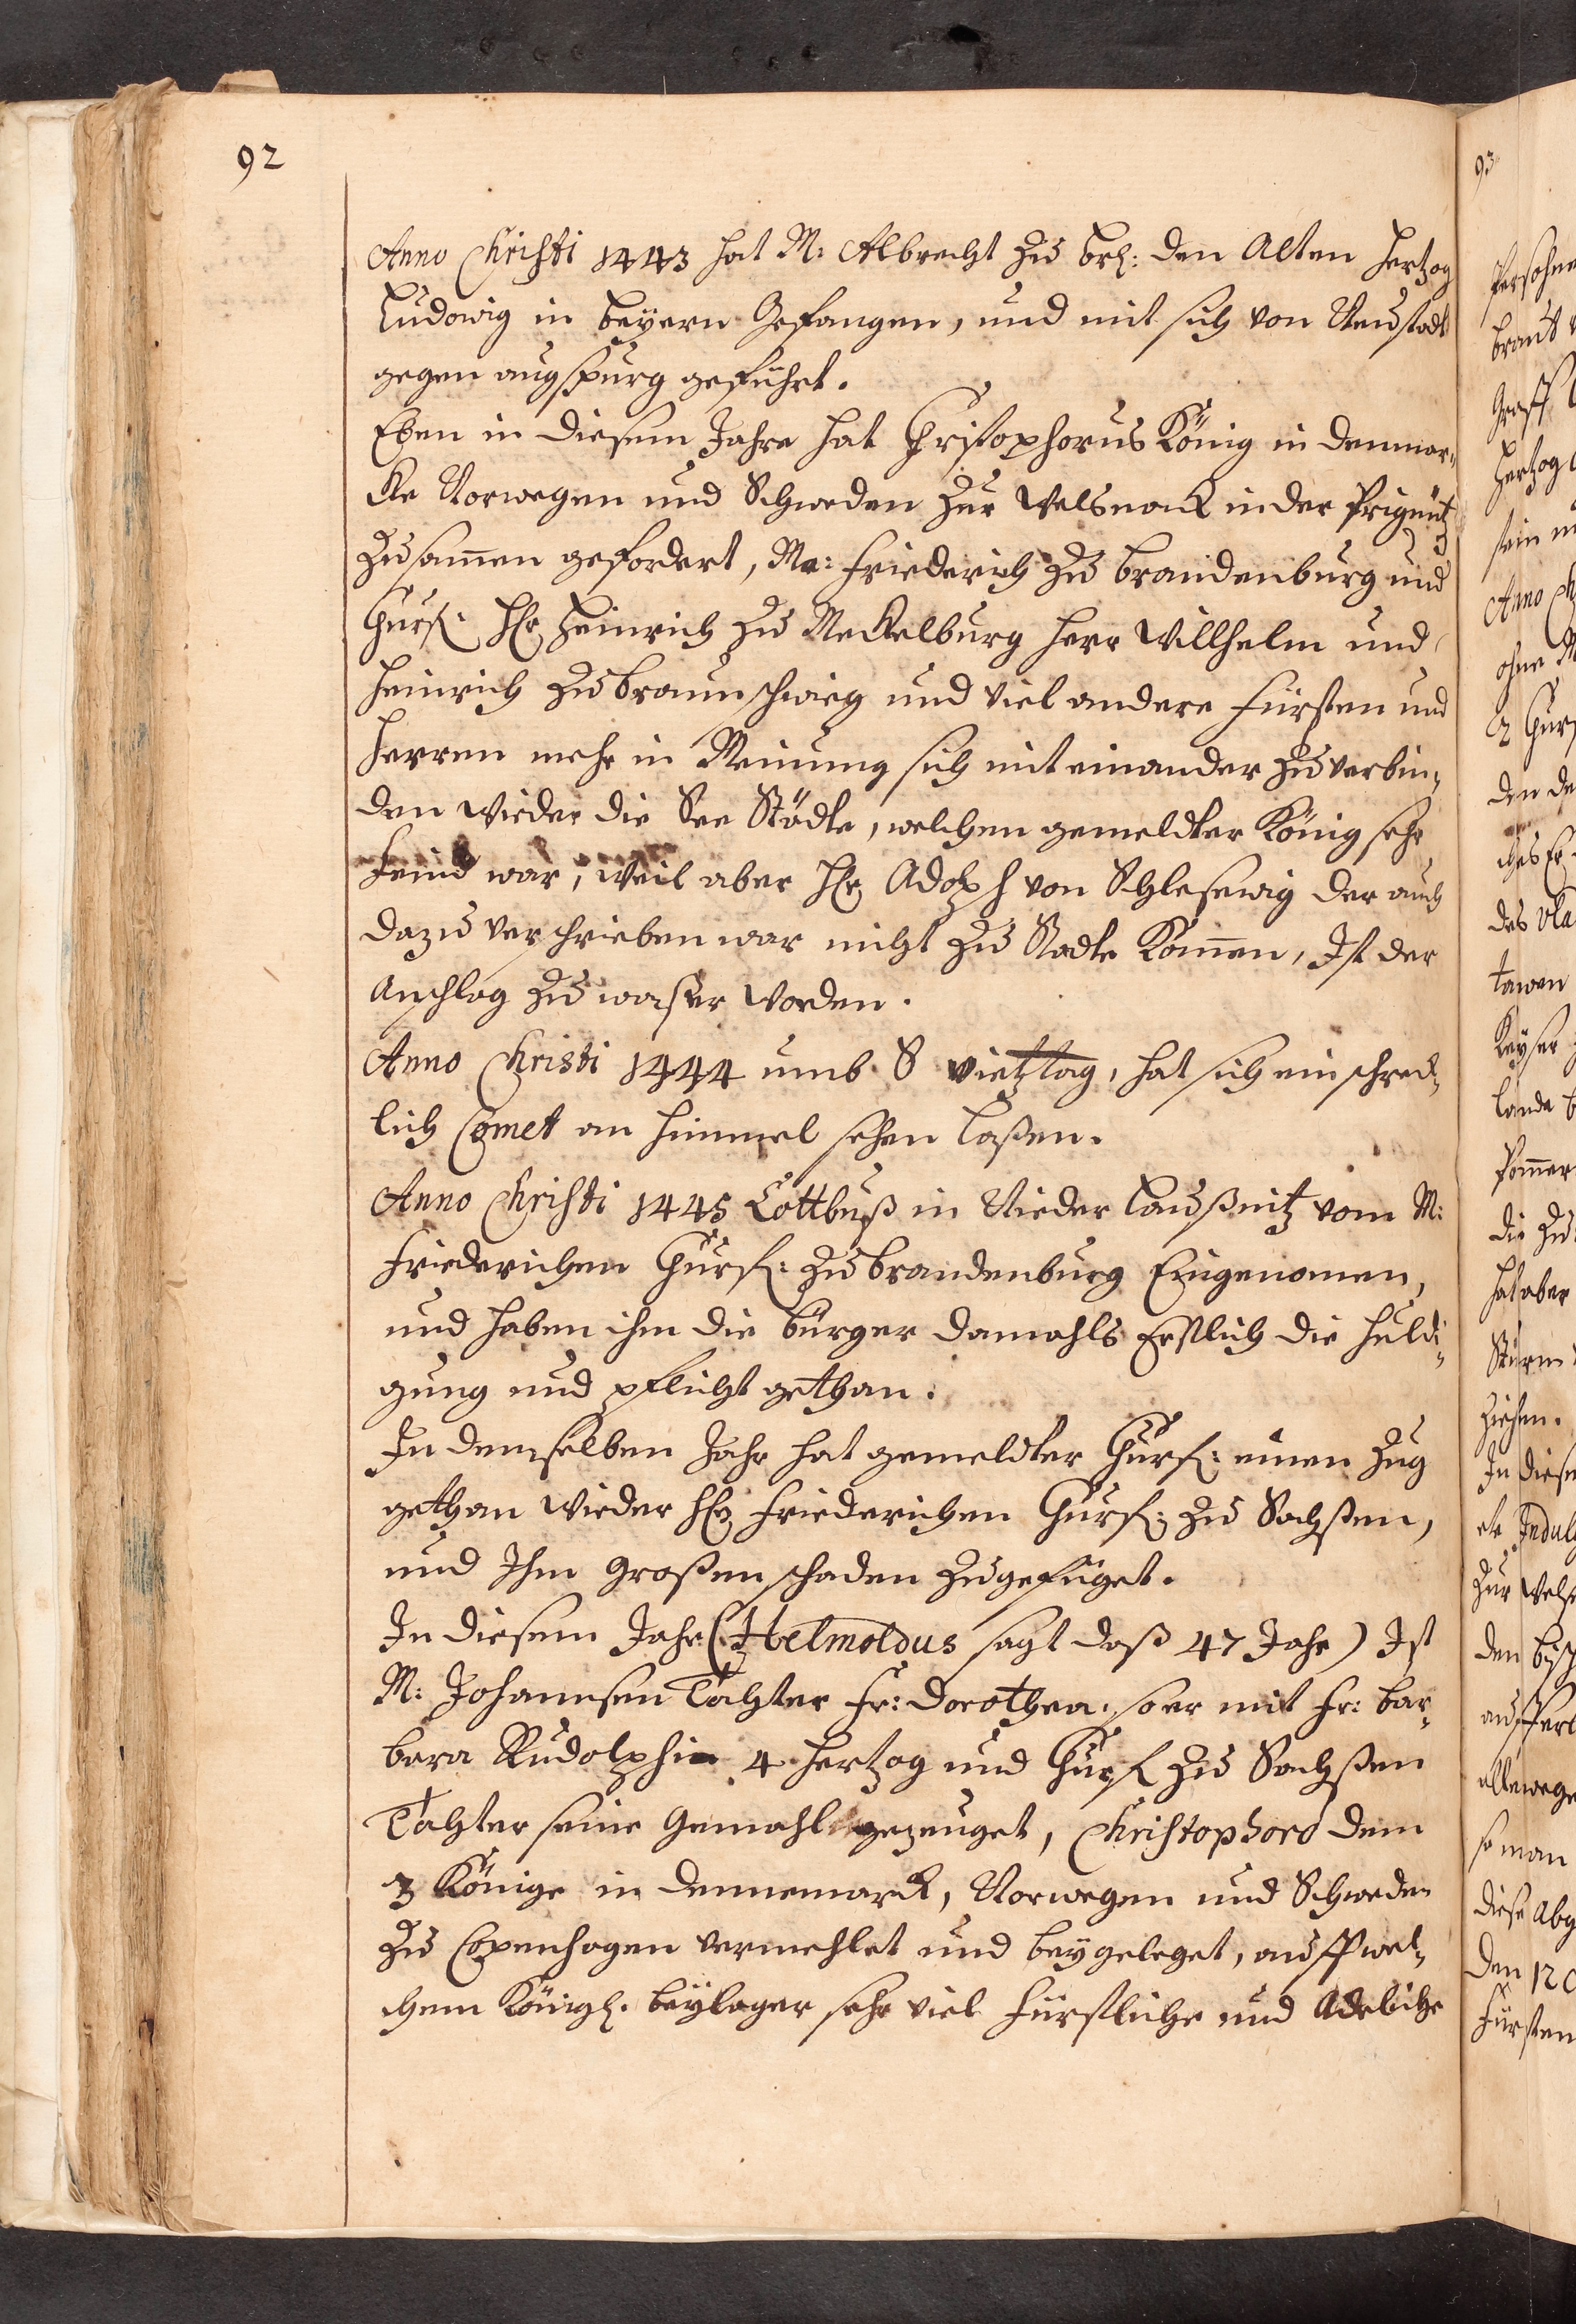 92
Anno Christi 1443 hat M: Albrecht zu Br: den Alten Hertzog
Ludowig in Beÿern Gefangen, und mit sich von Neustadt
gegen augspurg geführt.
Eben in diesem Jahre hat Christophorus König in Denmar-
cke Norwegen und Schweden zur Welsnack in der Prignitz
zusamen gefordert, Ma: Friederich zu Brandenburg und
Churf: H: Heinrich zu Meckelburg Herr Willhelm und
Heinrich zu Braunschwieg und viel andere Fürsten und
Herren mehr in Meinung sich mit einander zu verbin-
den wieder die See Städte, welchen gemeldter König sehr
Feind war, weil aber H: Adolph von Schleswig der auch
dazu verschrieben war nicht zu Stadte Komen, Ist der
Anschlag zu waßer worden.
Anno Christi 1444 umb S vietztag, hat sich ein schreck-
lich Comet an Himmel sehen laßen.
Anno Christi 1445 Cottbuß in Nieder Laußnitz vom M:
Friederichen Churf: zu Brandenburg Eingenomen,
und haben ihm die Bürger damahls Erstlich die Huldi-
gung und pflicht gethan.
In demselben Jahr hat gemeldter Churf: einen Zug
gethan wieder H: Friederichen Churf: zu Sachßen,
und Ihm großen schaden zugefüget.
In diesem Jahr (Helmoldus sagt daß 47 Jahr) Ist
M: Johannsen Tochter Fr: Dorothea. so er mit Fr: Bar-
bara Rudolphi 4 Hertzog und Churf zu Sachßen
Tochter seine Gemahl gezeuget, Christophoro dem
3 Könige in Dennemarck, Norwegen und Schweden
zu Copenhagen vermehlet und beygeleget, auff wel-
chem Königl. Beÿlager sehr viel Fürstliche und Adeliche
93